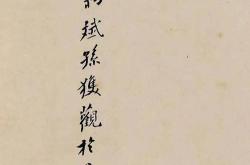 斌孫獲觀於